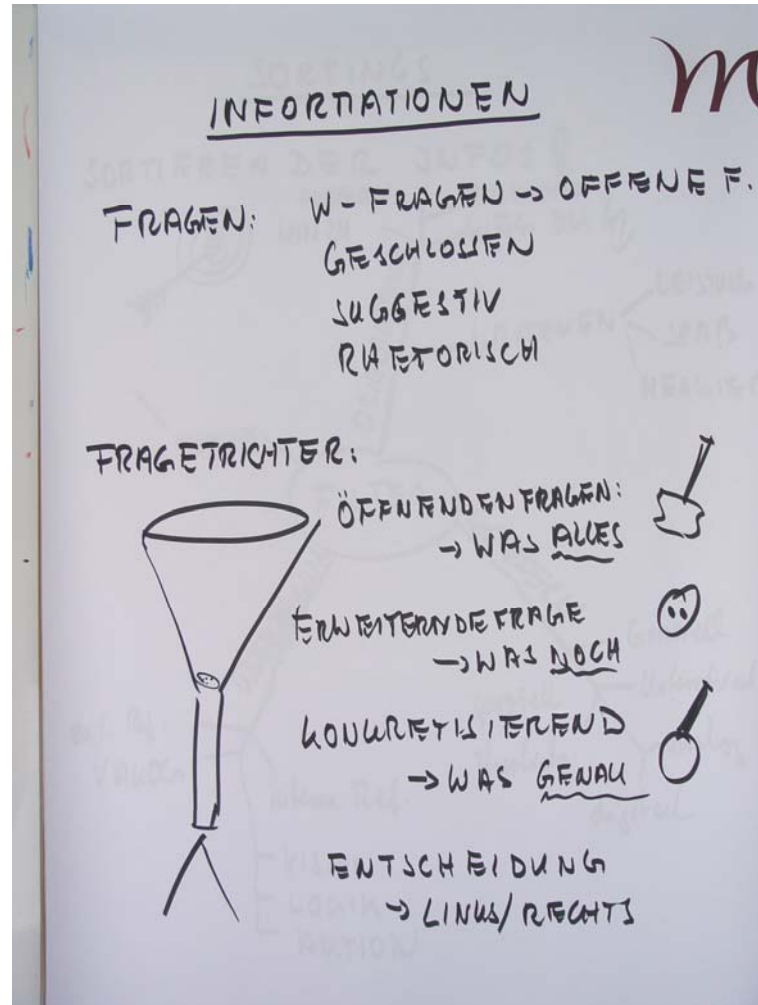 INFORMATIONEN
m
FRAGEN: W-FRAGEN → OFFENE F.
GESCHLOSSEN
SUGGESTIV
RHETORISCH
FRAGETRICHTER:
ÖFFNENDENFRAGEN:
→ WAS ALLES
ERWEITERNDEFRAGE
→ WAS NOCH
KONKRETISIEREND
→ WAS GENAU
ENTSCHEIDUNG
→ LINKS/RECHTS